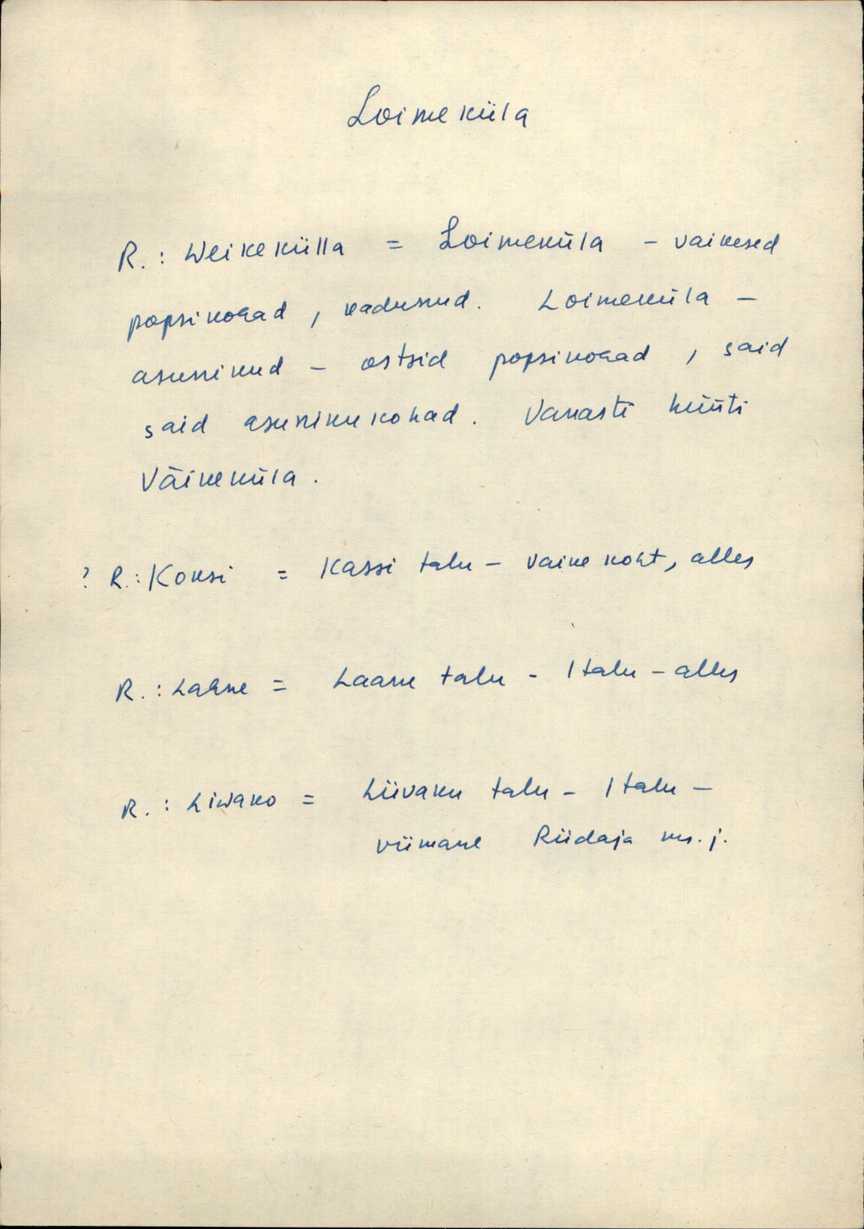 Loimeküla
R.: Weikekülla = Loimeküla - vaikesed
popsikohad, kadusnud. Loimeküla -
asunikud - ostsid popsikohad, said
said asunikukohad. Vanasti hüüti
Väikeküla.
? R.: Koksi = Kassi talu - vaike koht, alles
R.: Lahne = Laane talu - 1 talu - alles
R.: Liwako = Liivaku talu - 1 talu -
viimane Riidaja ms. j.